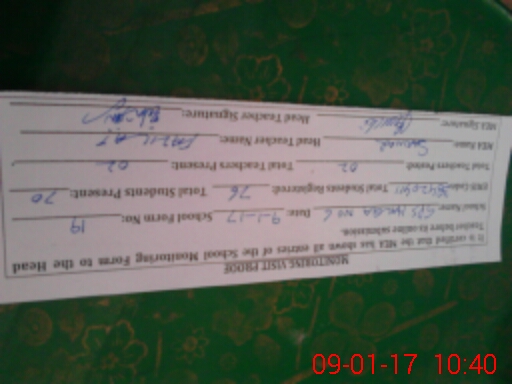 MONITORING VISIT PROOF
It is certified that the MEA has shown all entries of the School Monitoring Form to the Head
Teacher before its online submission.
School Name: GPS Date: 9-1-17 School Form No: 19
EMIS Code: Total Students Registered: 76 Total Students Present: 70
Total Teachers Posted: 02 Total Teachers Present: 02
MEA Name: Head Teacher Name:
MEA Signature: Head Teacher Signature:
09-01-17 10:40